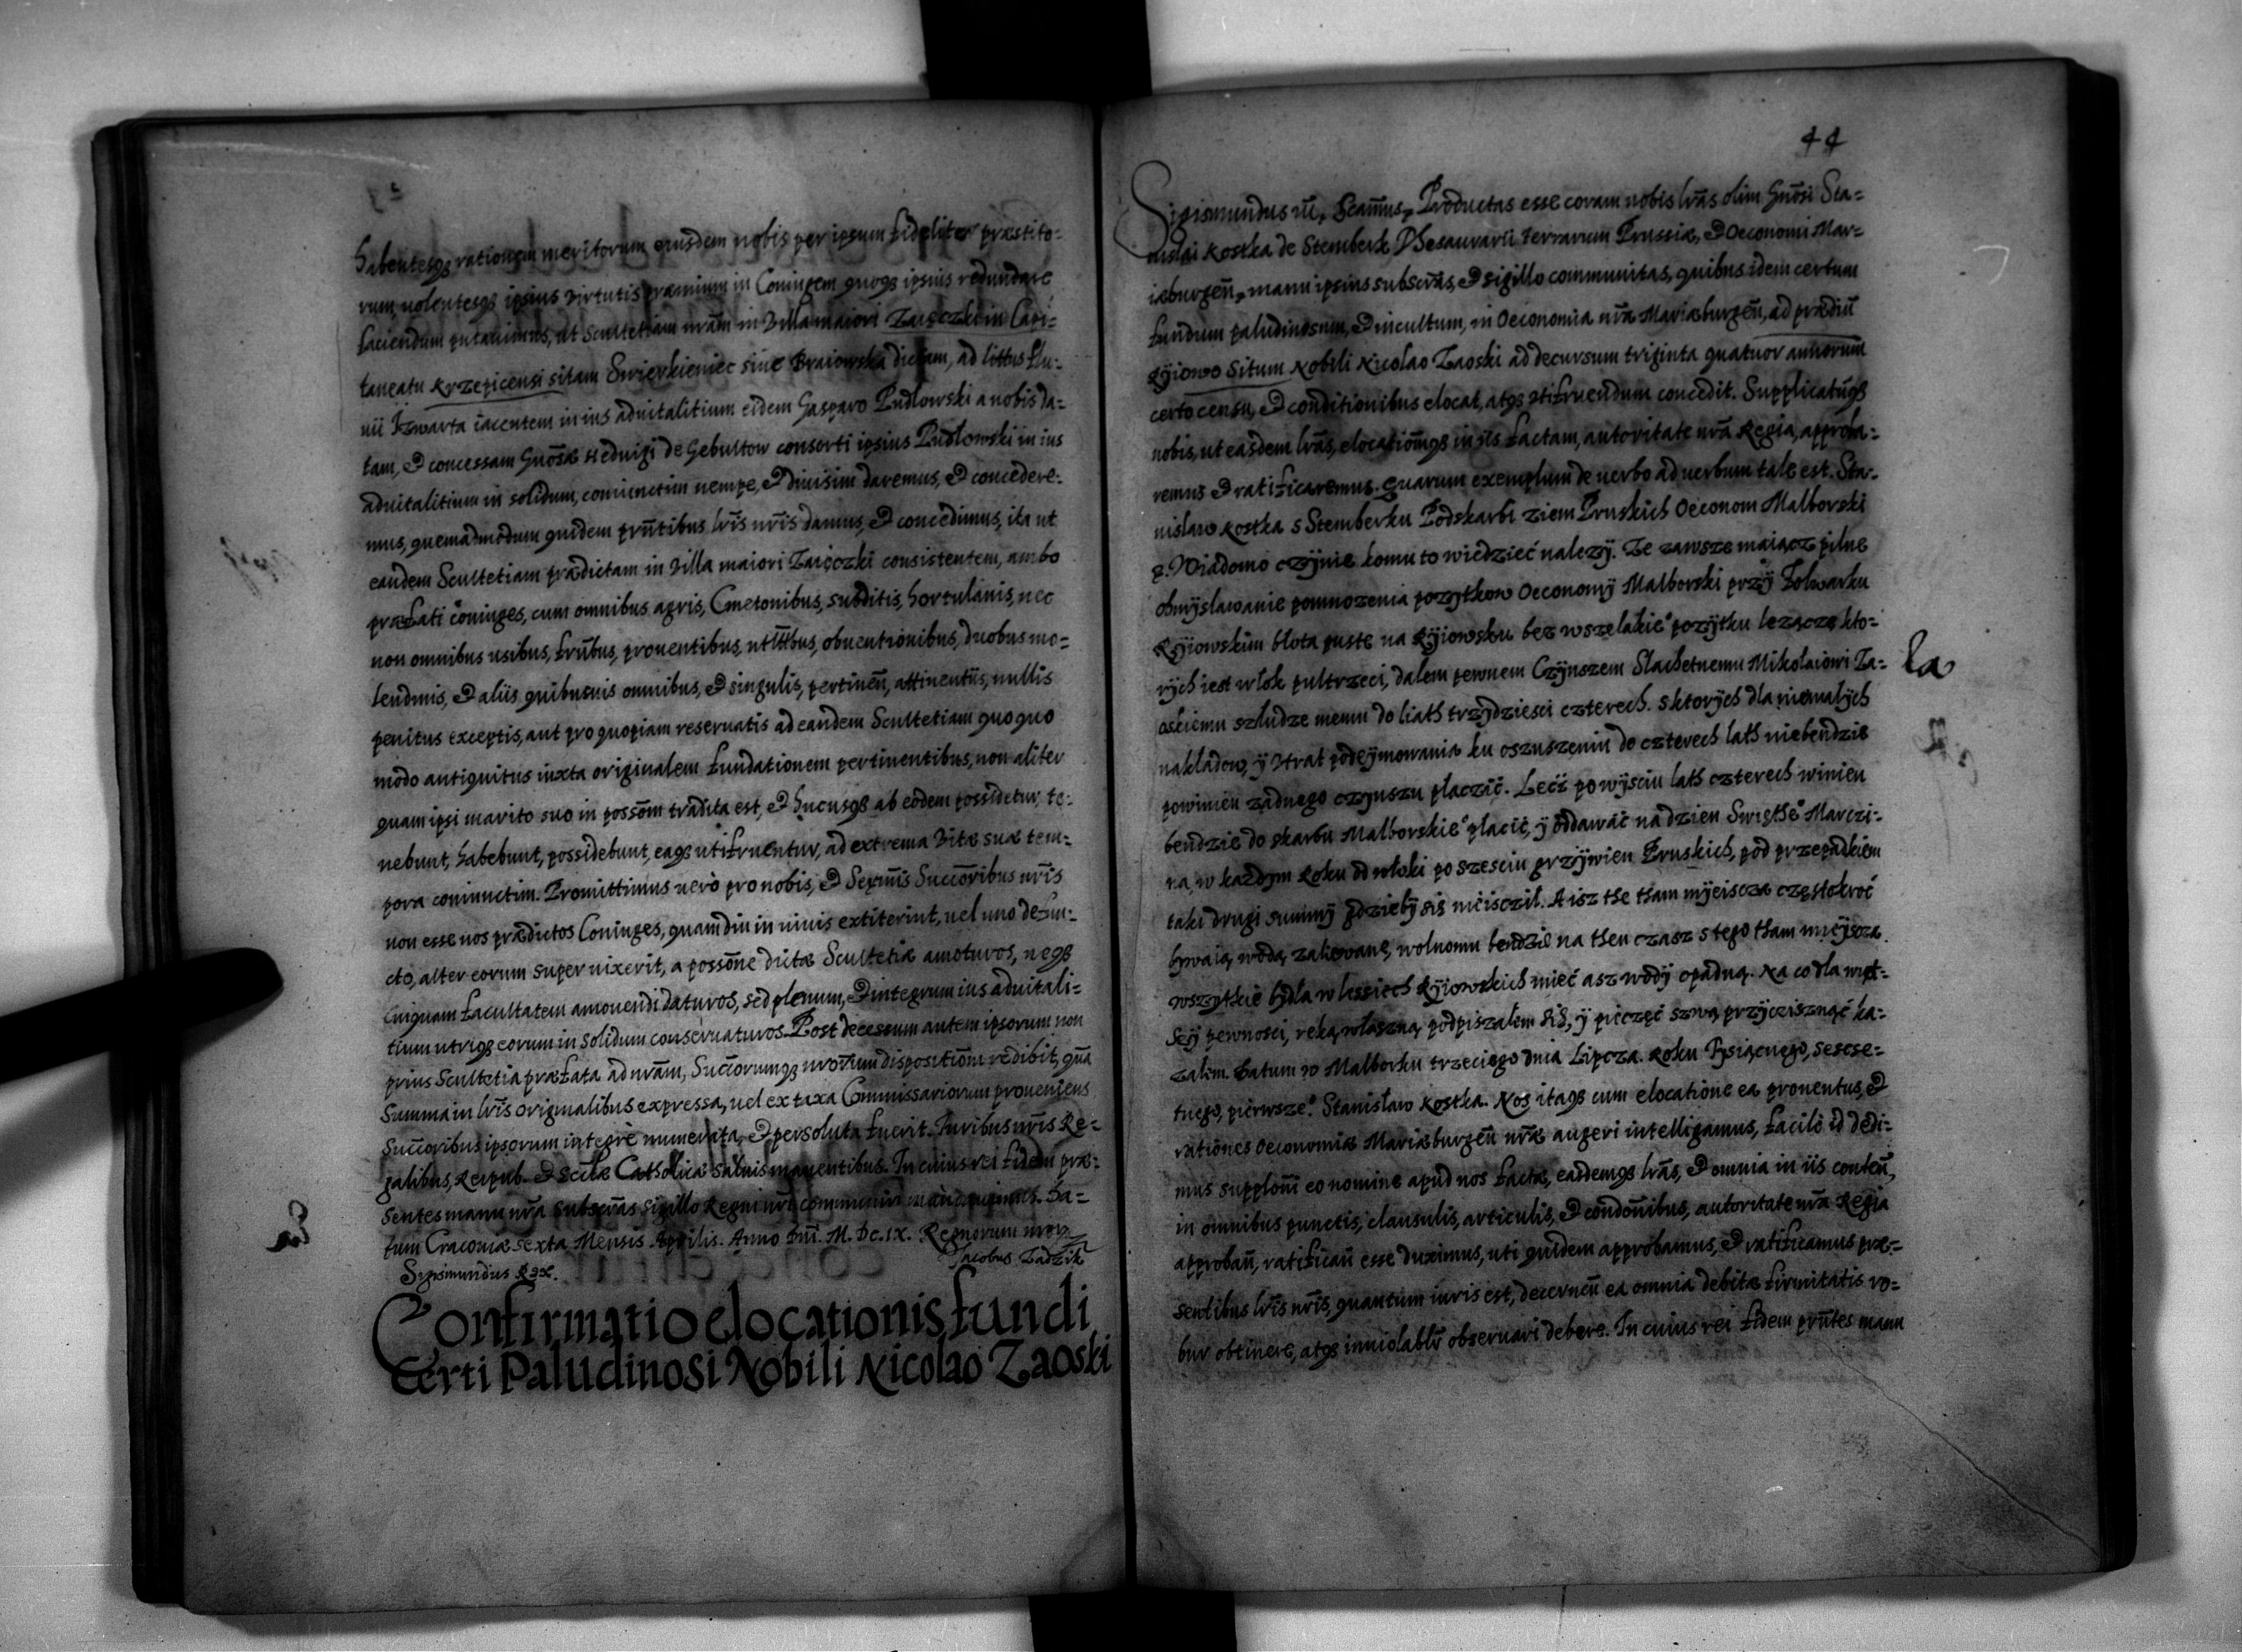 Habentesq3 rationem meritorum eiusdem nobis per ipsum fideliter præstito-
rum, uolentesq3 ipsius virtutis præmium in Coniugem quoq3 ipsius redundare
faciendum putauimus, ut Scultetiam nrãm in Villa maiori Zaięczki in Capi-
taneatu Krzepicensi sitam Swierkieniec siue Braiowska dictam, ad littus flu-
uii Izwarta iacentem in ius aduitalitium eidem Gasparo Pudlowski a nobis da-
tam, et concessam Gnõsæ Heduigi de Gebultow consorti ipsius Pudlowski in ius
aduitalitium in solidum, coniunctim nempe, et diuisim daremus, et concedere-
mus, quemadmodum quidem prñtibus lrĩs nrĩs damus, et concedimus, ita ut
eandem Scultetiam prædictam in Villa maiori Zaięczki consistentem, ambo
præfati coniuges, cum omnibus agris, Cmetonibus, subditis, hortulanis, nec
non omnibus usibus, frũbus, prouentibus, utĩttbus, obuentionibus, duobus mo-
lendinis, et aliis quibusuis omnibus, et singulis, pertineñ, attinentiis, nullis
penitus exceptis, aut pro quopiam reseruatis ad eandem Scultetiam quoquo
modo antiquitus iuxta originalem fundationem pertinentibus, non aliter
quam ipsi marito suo in possõm tradita est, et hucusq3 ab eodem possidetur, te-
nebunt, habebunt, possidebunt, eaq3 utifruentur, ad extrema vitæ suæ tem-
pora coniunctim. Promittimus uerò pro nobis, et Serm̃is Succõribus nrĩs
non esse nos prædictos Coniuges, quamdiu in uiuis extiterint, uel uno defun-
cto, alter eorum super uixerit, a possõne dictæ Scultetiæ amoturos, neq3
cuiquam facultatem amouendi daturos, sed plenum, et integrum ius aduitali-
tium utriq3 eorum in solidum conseruaturos. Post decessum autem ipsorum non
prius Scultetia præfata ad nrãm, Succõrumq3 nrõrum dispositiõm redibit, quã
Summa in lrĩs originalibus expressa, uel ex taxa Commissariorum proueniens
Succõribus ipsorum integrè numerata, et persoluta fuerit. Iuribus nrĩs Re-
galibus, Reipub. et Ecclæ Catholicæ saluis manentibus. In cuius rei fidem præ-
sentes manu nrã subscrãs sigillo Regni nrĩ communiri mandauimus. Da-
tum Cracouiæ sexta Mensis Aprilis. Anno Dnĩ. M. Dc. IX. Regnorum nror
Sigismundus Rex. Jacobus Zadzik
Confirmatio elocationis fundi
Certi Paludinosi Nobili Nicolao Zaoski
44
Sigismundus iii, Productas esse coram nobis lrãs olim Gnõsi Sta-
nislai Kostka de Stemberk Thesaurarii terrarum Prussiæ, et Oeconomi Mar-
iæburgeñ, manu ipsius subscrãs, et sigillo communitas, quibus idem certum
fundum paludinosum, et incultum, in Oeconomia nrã Mariæburgeñ, ad prædiũ
Kyiowo situm Nobili Nicolao Zaoski ad decursum triginta quatuor annorum
certo censu, et conditionibus elocat, atq3 utifruendum concedit. Supplicatũq3
nobis, ut easdem lrãs, elocatiõmq3 in iis factam, autoritate nrã Regia, approba-
remus et ratificaremus. Quarum exemplum de uerbo ad uerbum tale est. Sta-
nislaw Kostka s Stemberku Podskarbi ziem Pruskich Oeconom Malborski
Wiadomo czÿnie komu to wiedzieć nalezÿ. Ze zawsze maiącz pilne
obmÿslawanie pomnozenia pozÿtkow Oeconomÿ Malborski przÿ folwarku
Kÿiowskim blota puste na Kÿiowsku bez wszelakie° pozÿtku lezącze kto-
rÿch iest wlok pultrzeci, dalem pewnem Czÿnszem Slachetnemu Mikolaiowi Za-
la
oskiemu szludze memu do liath trzÿdziesci czterech. s ktorÿch dla niemalÿch
nakladow, ÿ utrat podeÿmowania ku oszuszeniu do czterech lath niebendzie
powinien zadnego czynszu placzić. Lecż po wÿsciu lath czterech winien
bendzie do skarbu Malborskie° placić, ÿ oddawać na dzien Swięthe° Marczi-
na, w kazdym Roku od wloki po szesciu grzÿwien Pruskich, pod przepadkiem
taki drugi summÿ gdziebÿ sis niiscził. A isz the tham mÿeiscza częstokroć
bywaią wodą zaliewane, wolnomu bendzie na then czasz s tego tham mieÿscza
wszytkie bÿdla w lessiech Kÿiowskich mieć asz wodÿ opadną. Na co dla więt-
seÿ pewnosci, reką wlaszną podpiszalem się, ÿ pieczęć szwą przÿcziszнąć ka-
zalem. Datum w Malborku trzeciego dnia Lipcza. Roku Tysiącnego, szescse-
tnego, pierwsze°. Stanislaw Kostka. Nos itaq3 cum elocatione ea prouentus, et
rationes Oeconomiæ Mariæburgeñ nræ augeri intelligamus, facilè id dedi-
mus suppliõni eo nomine apud nos factæ, easdemq3 lrãs, et omnia in iis conteñ,
in omnibus punctis, clausulis, articulis, et condõnibus, autoritate nrã Regia
approbañ, ratificañ esse duximus, uti quidem approbamus, et ratificamus præ-
sentibus lrĩs nrĩs, quantum iuris est, decerneñ ea omnia debitæ firmitatis ro-
bur obtinere, atq3 inuiolablr̃ obseruari debere. In cuius rei fidem prñtes manu